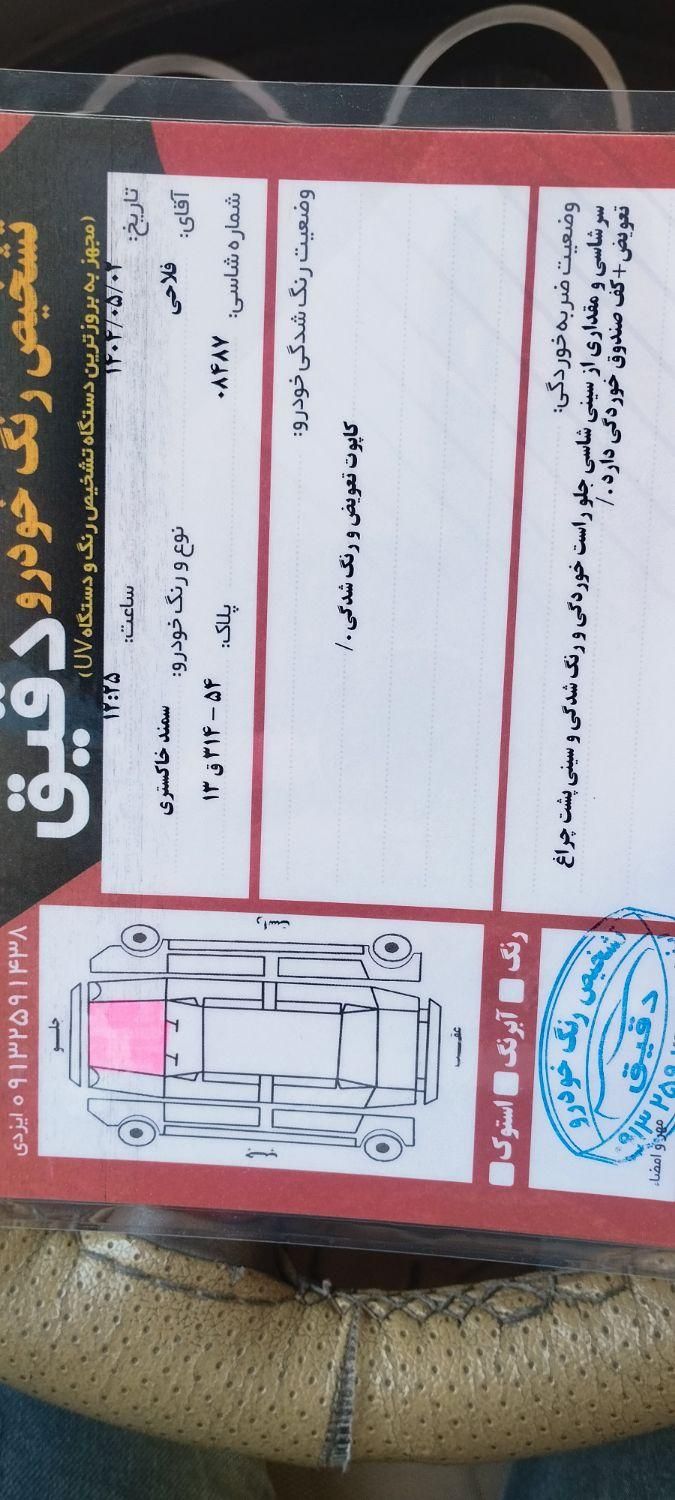 تشخیص رنگ خودرو دقیق
(مجهز به بروزترین دستگاه تشخیص رنگ و دستگاه UV)
تاریخ: ساعت: ۱۲:۲۵
آقای: فلاحی نوع و رنگ خودرو: سمند خاکستری
شماره شاسی: ۰۸۴۸۷ پلاک: ۵۴ – ۳۱۴ ق ۱۳
وضعیت رنگ شدگی خودرو:
کاپوت تعویض و رنگ شدگی ./
وضعیت ضربه خوردگی:
سرشاسی و مقداری از سینی شاسی جلو راست خوردگی و رنگ شدگی و سینی پشت چراغ
تعویض + کف صندوق خوردگی دارد ./
۰۹۱۳۲۵۹۱۴۳۸ ایزدی
راست
جلو
عقب
رنگ آبرنگ استوک
تشخیص رنگ خودرو
دقیق
مهر و امضاء